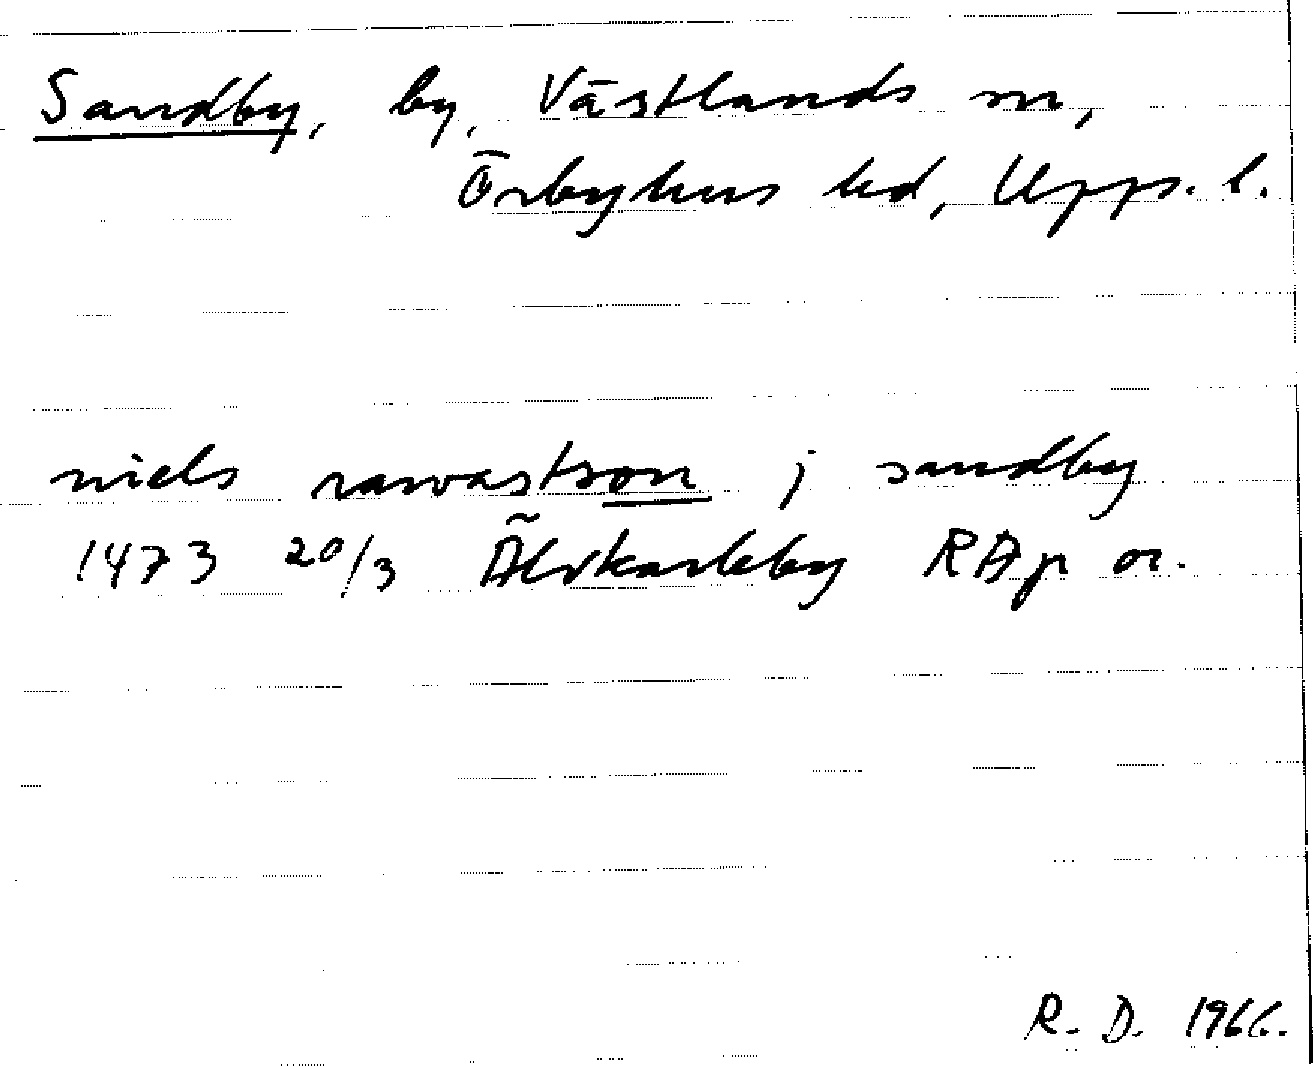 Sandby, by, Västlands sn,
Örbyhus hd, Upps. l.
niels ravvastson j sandby
1473 20/3 Älvkarleby RAp or.
R. D. 1966.